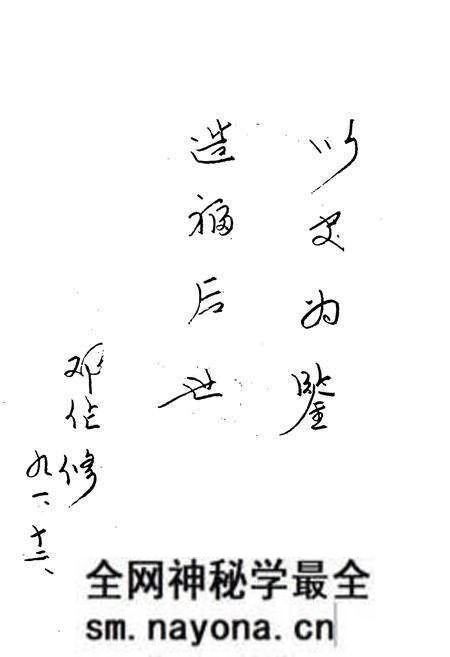 以史为鉴
造福后世
邓佐修
九一、十二、
全网神秘学最全
sm.nayona.cn